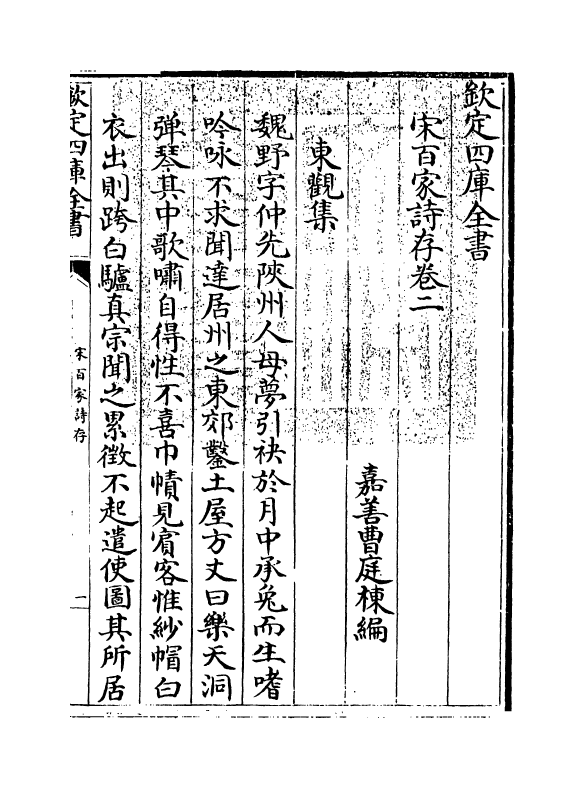 欽定四庫全書
宋百家詩存卷二
嘉善曹庭棟編
東觀集
魏野字仲先陝州人母夢引袂於月中承兔而生嗜
吟咏不求聞達居州之東郊鑿土屋方丈曰樂天洞
弹琴其中歌嘯自得性不喜巾幘見賓客惟紗帽白
衣出則跨白驢真宗聞之累徴不起遣使圖其所居
欽定四庫全書
宋百家詩存
二